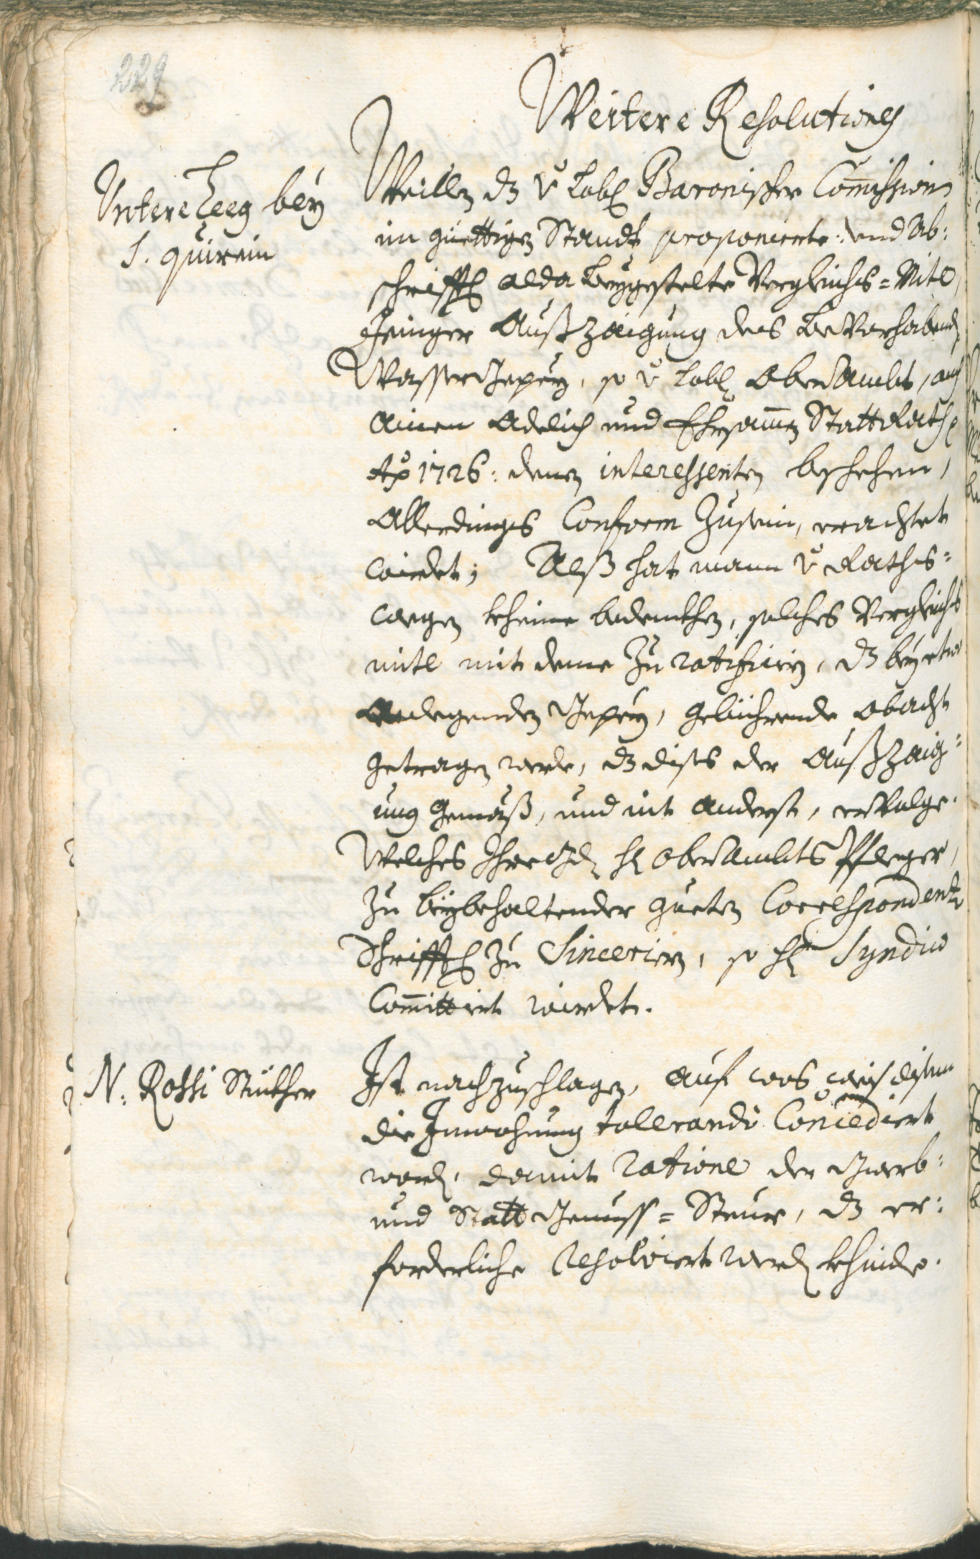 229
Weitere Resolutiones
Untere Leeg bey
S. Quirein
Weillen dz v Löbl Baronischer Commission
im güettigen Standt proponierte: und Ab:
schrifftl alda beygestelte Vergleichs=Mitl,
jeniger Außzaigung des bevorhabend
Wasser Gepey, so v Löbl OberAmbts, auf
ainen Adelich und Ehrsammen StattRath
Ao 1726: denen interessenten beschehen,
Allerdings Conform zusein, erachtet
wirdet; Alß hat mann v Raths=
wegen kheine bedenkhen, solches Vergleichs
mitl mit deme zu ratificiern, dz bey etwo
Gepey, gebührende obacht
getragen werde, dz dises der Außzaig=
ung gemäß, und nit anderst, ervolge.
Welches Ihro Gd Hl OberAmbts Pfleger,
zu beybehaltender gueten Correspondentz
Schrifftl zu Sinceriern, so Hl Syndico
Committirt wirdet.
N: Rossi Stükher
Ist nachzuschlagen, auf was weis disem
die Inwohnung tollerando Concediert
word, damit ratione der Gwerb:
und Statt Genuss=Steur, dz er:
forderliche Resolviert werd khinde.